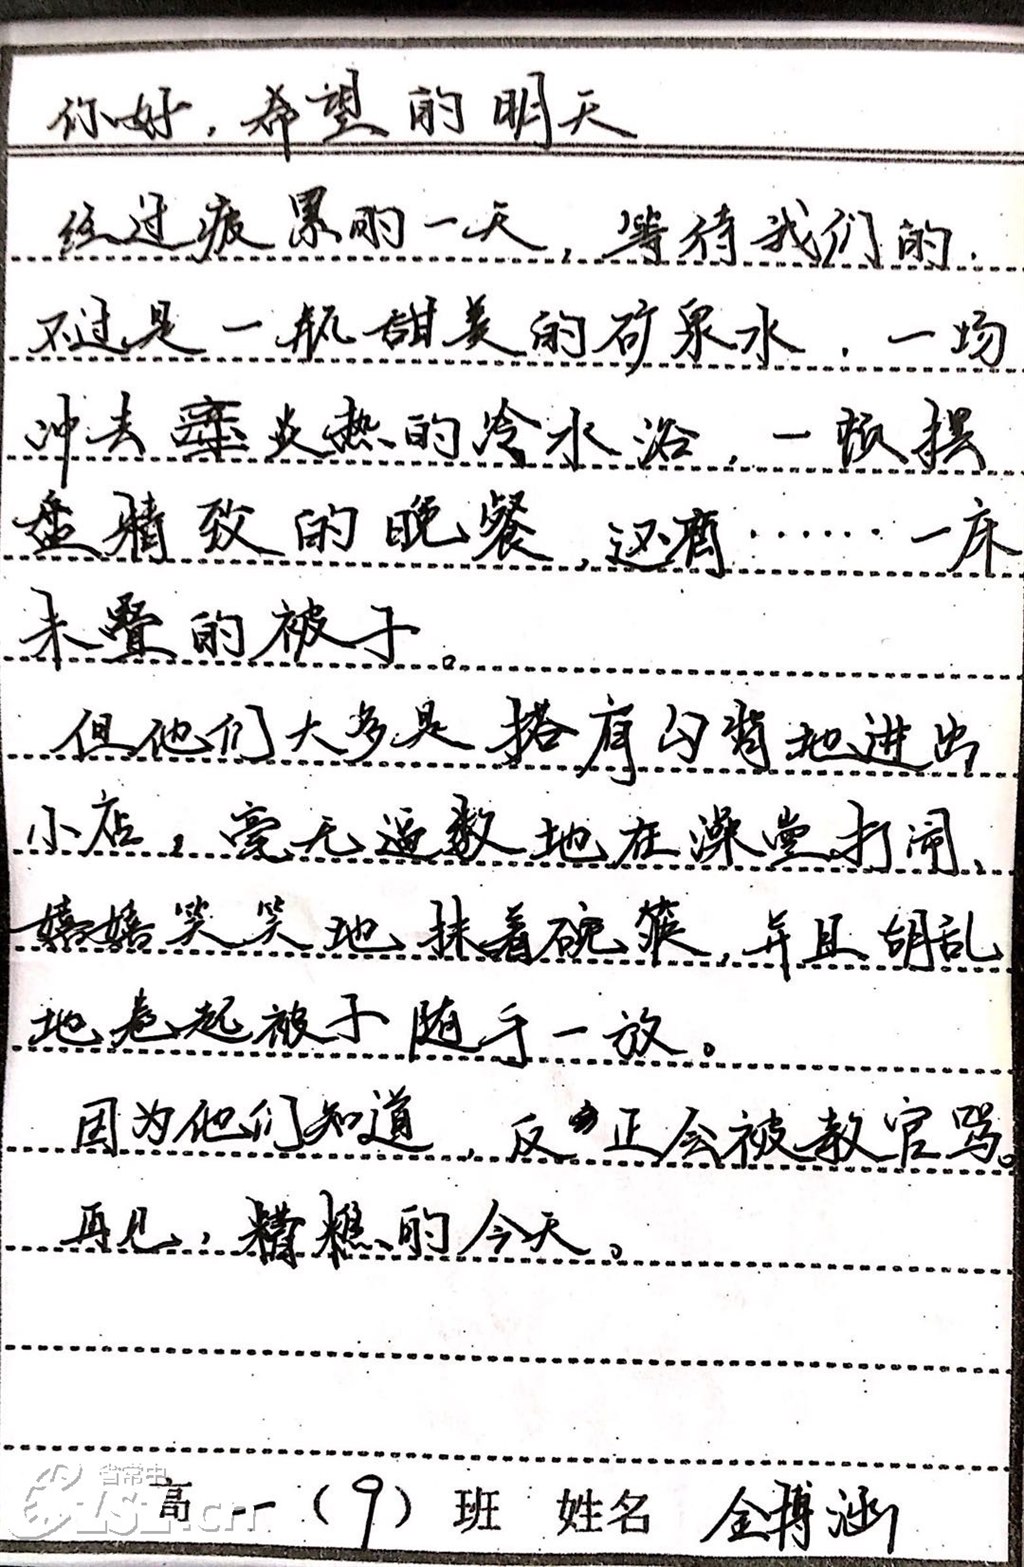 你好，希望的明天
经过疲累的一天，等待我们的，
不过是一瓶甜美的矿泉水，一场
冲去炎热的冷水浴，一顿摆
盘精致的晚餐，还有……一床
未叠的被子。
但他们大多是搭肩勾背地进出
小店，毫无逼数地在澡堂打闹，
嘻嘻笑笑地抹着碗筷，并且胡乱
地卷起被子随手一放。
因为他们知道，反正会被教官骂。
再见，糟糕的今天。
高一（9）班 姓名 金博涵
省常中